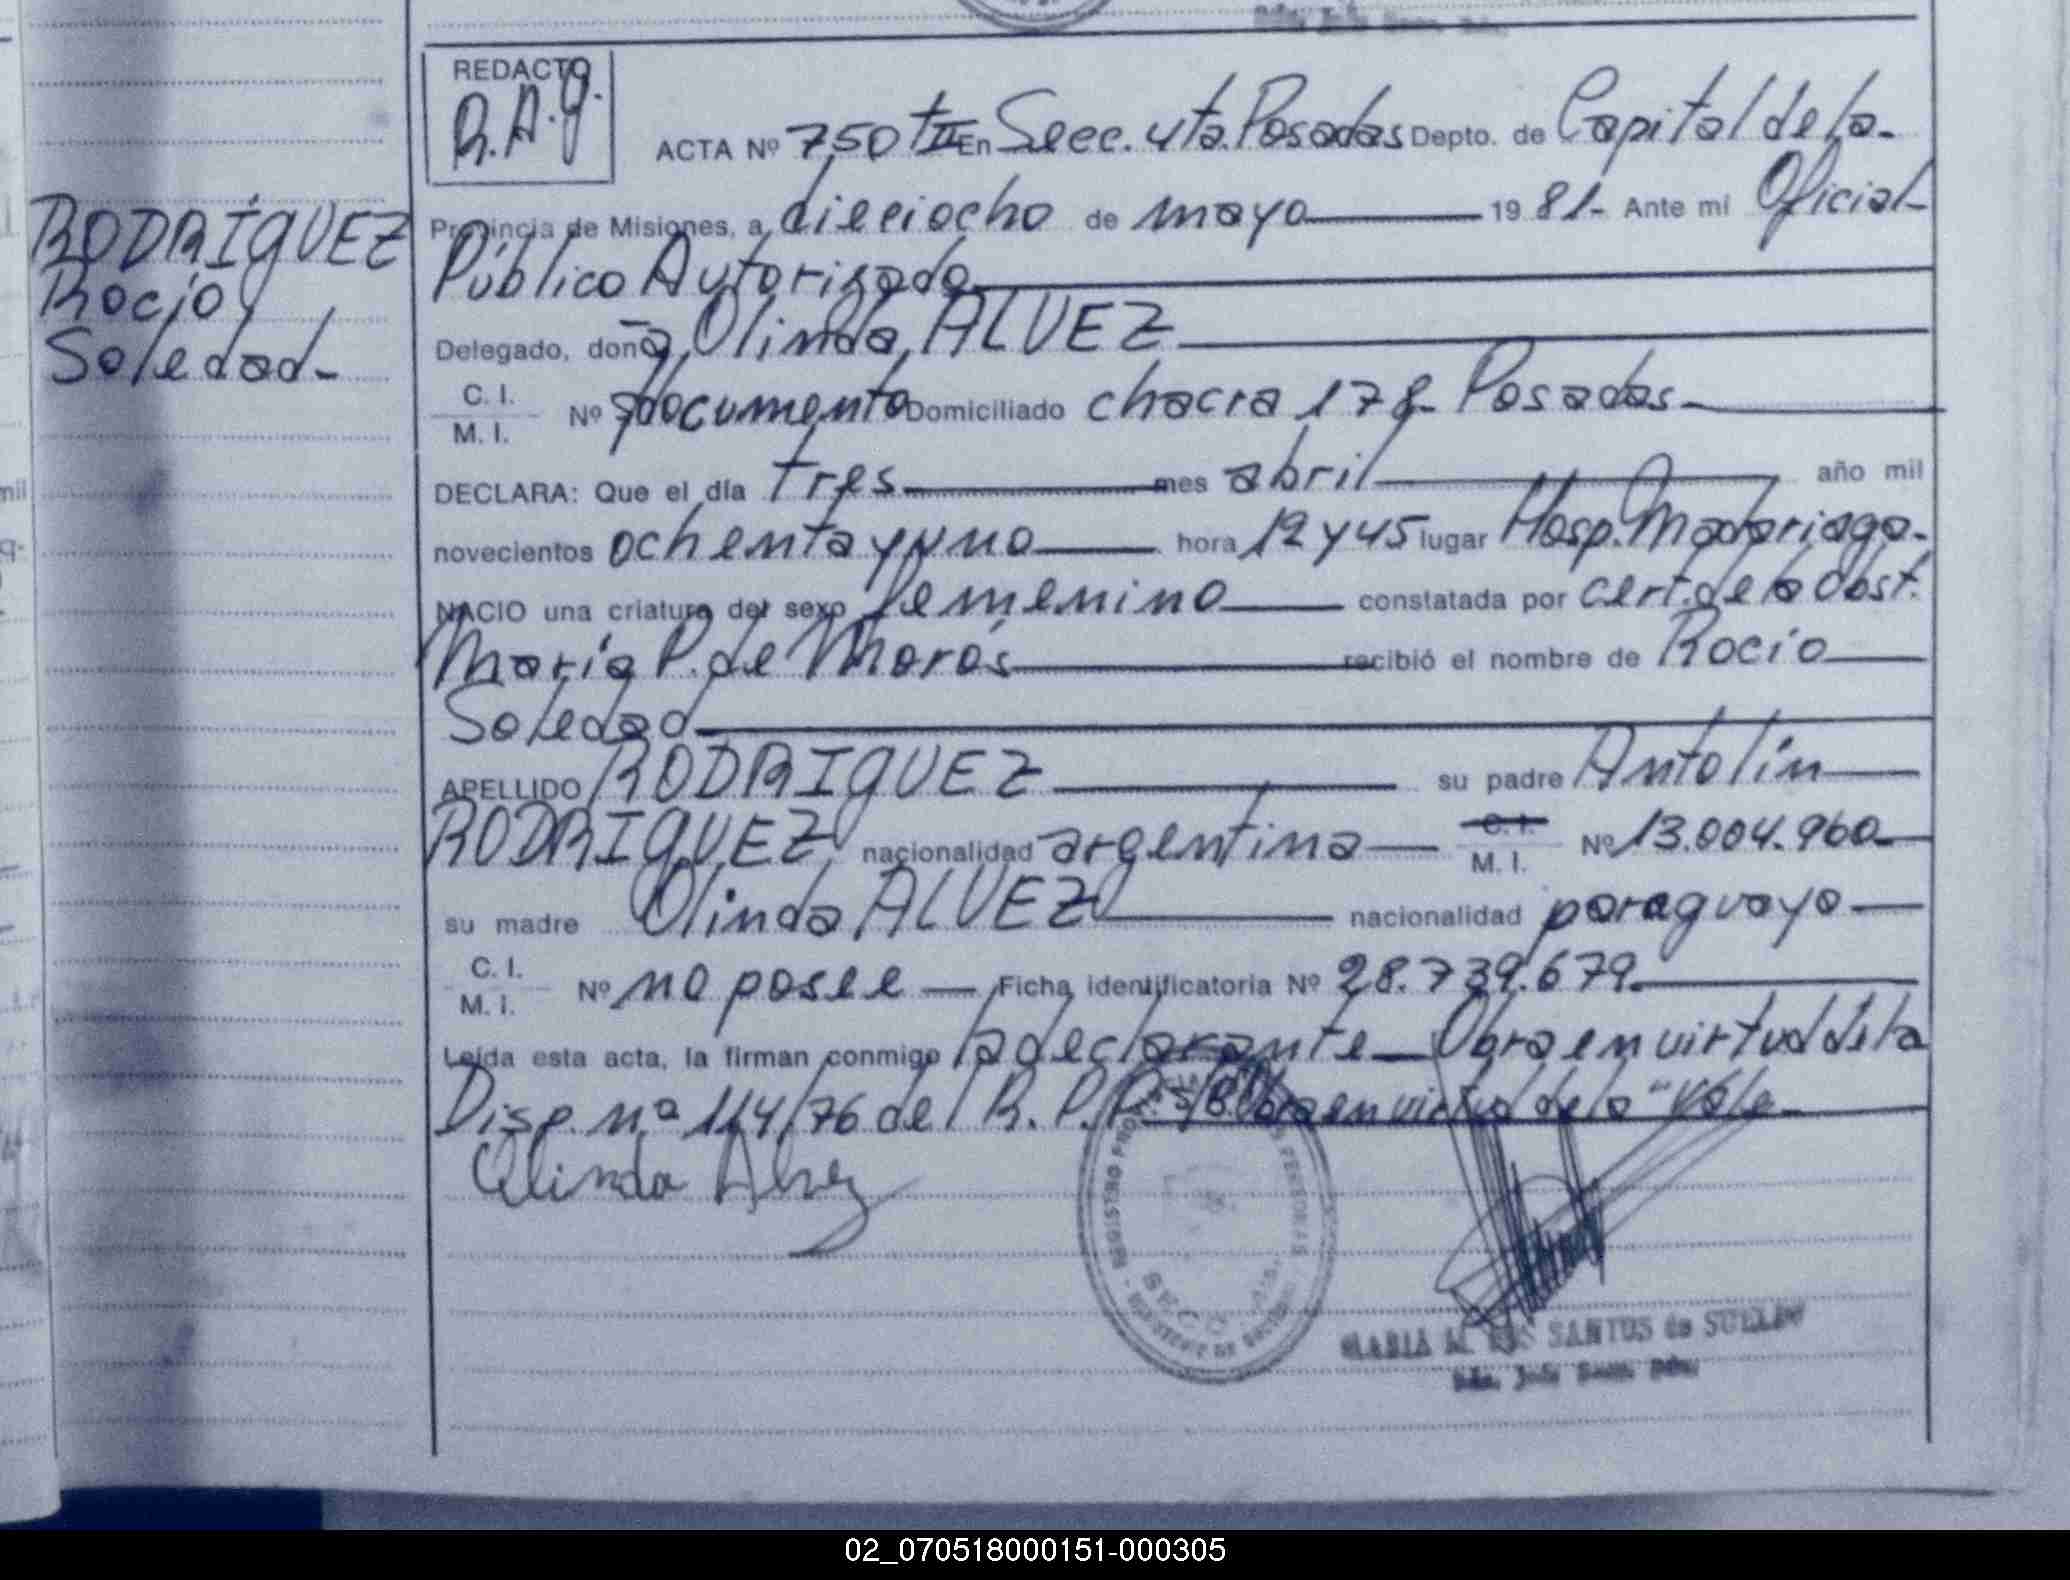 REDACTO
R.A.g.
ACTA Nº 750 tII En Secc. 4ta. Posadas Depto. de Capital de la-
Provincia de Misiones, a dieciocho de mayo 1981- Ante mí Oficial-
Público Autorizado
Delegado, doña, Olinda, ALVEZ
C. I.
M. I.
Nº s/documento Domiciliado chacra 178- Posadas-
DECLARA: Que el día tres mes abril año mil
novecientos ochenta y uno hora 12 y 45 lugar Hosp. Madariaga-
NACIO una criatura del sexo femenino constatada por cert. de la Obst.
María P. de Morós recibió el nombre de Rocío
Soledad
APELLIDO RODRIGUEZ su padre Antolín
RODRIGUEZ, nacionalidad argentina C. I. M. I. Nº 13.004.960-
su madre Olinda ALVEZ nacionalidad paraguaya
C. I.
M. I.
Nº no posee Ficha identificatoria Nº 28.739.679.
Leída esta acta, la firman conmigo la declarante - Obra en virtud de la
Disp. nº 114/76 del R.P.P. s/B. Obra en virtud de la "Vale
Olinda Alvez
RODRÍGUEZ
Rocío
Soledad-
REGISTRO PERSONAS
SECC.
MARIA M. SANTOS de
02_070518000151-000305